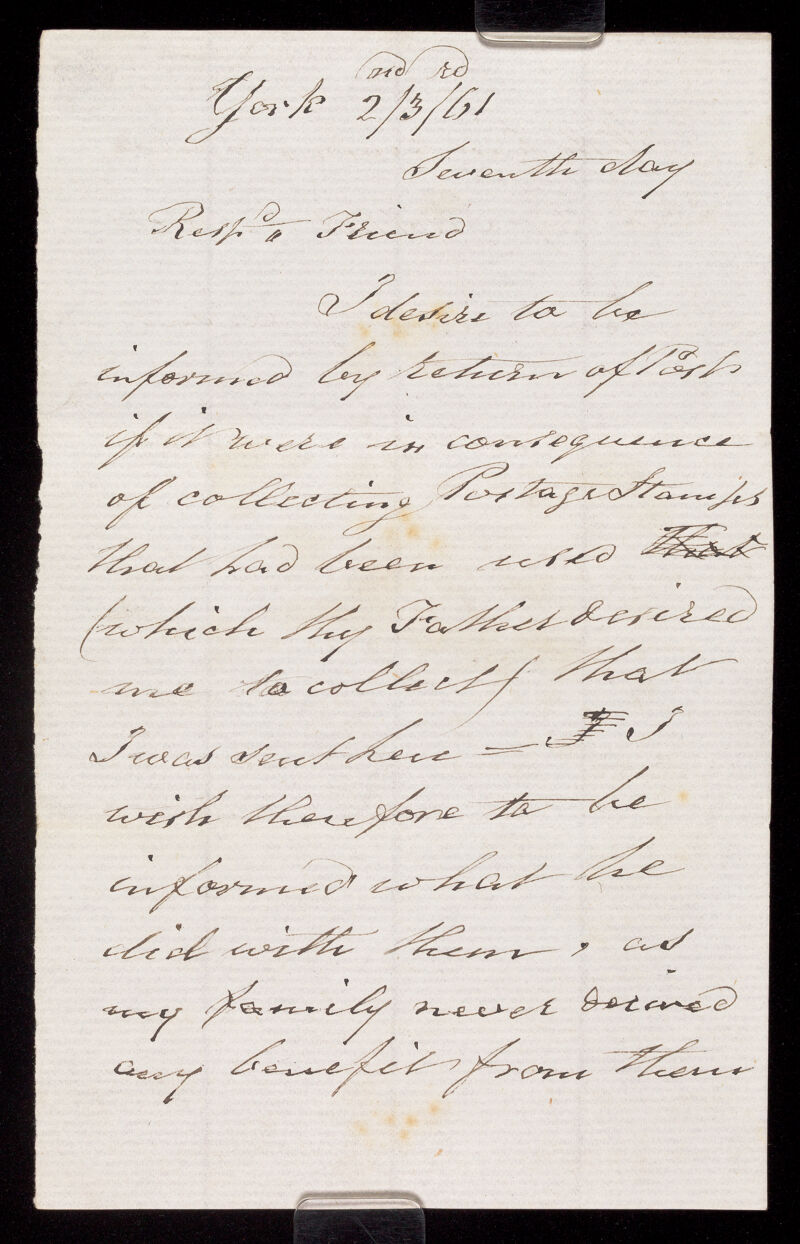 York 2nd/3rd/61
Seventh day
Respd Friend
I desire to be
informed by return of Post
if it were in consequence
of collecting Postage Stamps
that had been used that
(which thy Father desired
me to collect) that
I was sent here — I I
wish therefore to be
informed what he
did with them, as
my family never derived
any benefit from them